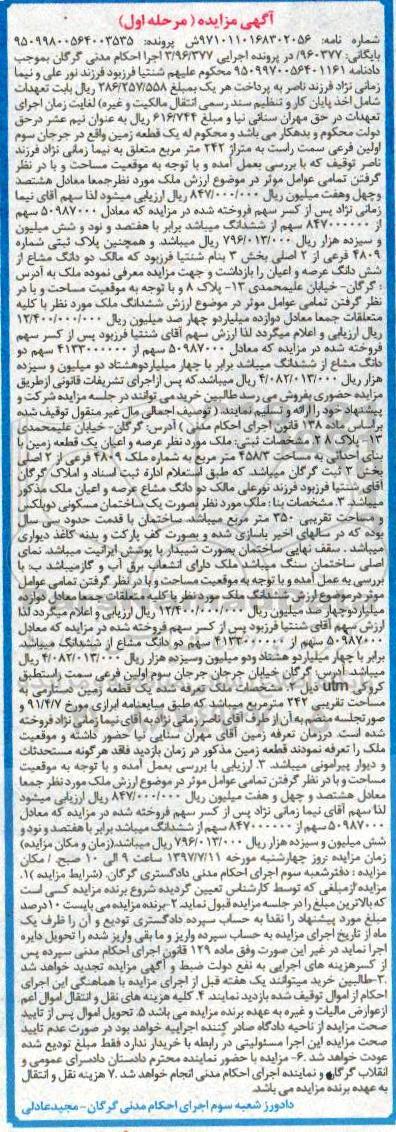 آگهی مزایده (مرحله اول)
شماره نامه: ۹۷۱۰۱۱۰۱۶۸۳۰۲۰۵۶ش پرونده: ۹۵۰۹۹۸۰۰۵۶۴۰۰۳۵۳۵
بایگانی: ۹۶۰۳۷۷/ در پرونده اجرایی ۳/۹۶/۳۷۷ اجرا احکام مدنی گرگان بموجب
دادنامه ۹۵۰۹۹۷۰۰۵۶۴۰۱۱۶۱ محکوم علیهم شنتیا فرزبود فرزند نور علی و نیما
زمانی نژاد فرزند ناصر به پرداخت هر یک بمبلغ ۲۸۶/۲۵۷/۵۵۸ ریال بابت تعهدات
شامل اخذ پایان کار و تنظیم سند رسمی انتقال مالکیت و غیره) لغایت زمان اجرای
تعهدات در حق مهران سنائی نیا و مبلغ ۶۱۶/۷۴۴ ریال به عنوان نیم عشر درحق
دولت محکوم و بدهکار می باشد و محکوم له یک قطعه زمین واقع در جرجان سوم
اولین فرعی سمت راست به متراژ ۲۴۲ متر مربع متعلق به نیما زمانی نژاد فرزند
ناصر توقیف که با بررسی بعمل آمده و با توجه به موقعیت مساحت و با در نظر
گرفتن تمامی عوامل موثر در موضوع ارزش ملک مورد نظرجمعا معادل هشتصد
وچهل وهفت میلیون ریال ۸۴۷/۰۰۰/۰۰۰ ریال ارزیابی میشود لذا سهم آقای نیما
زمانی نژاد پس از کسر سهم فروخته شده در مزایده که معادل ۵۰۹۸۷۰۰۰ سهم
از ۸۴۷۰۰۰۰۰۰ سهم از ششدانگ میباشد برابر با هفتصد و نود و شش میلیون
و سیزده هزار ریال ۷۹۶/۰۱۳/۰۰۰ ریال میباشد. و همچنین پلاک ثبتی شماره
۴۸۰۹ فرعی از ۲ اصلی بخش ۳ بنام شنتیا فرزبود که مالک دو دانگ مشاع از
شش دانگ عرصه و اعیان را بازداشت و جهت مزایده معرفی نموده ملک به آدرس
: گرگان- خیابان علیمحمدی ۱۳- پلاک ۸ و با توجه به موقعیت مساحت و با در
نظر گرفتن تمامی عوامل موثر در موضوع ارزش ششدانگ ملک مورد نظر با کلیه
متعلقات جمعا معادل دوازده میلیارد و چهار صد میلیون ریال ۱۲/۴۰۰/۰۰۰/۰۰۰
ریال ارزیابی و اعلام میگردد لذا ارزش سهم آقای شنتیا فرزبود پس از کسر سهم
فروخته شده در مزایده که معادل ۵۰۹۸۷۰۰۰ سهم از ۴۱۳۳۰۰۰۰۰۰ سهم دو
دانگ مشاع از ششدانگ میباشد برابر با چهار میلیاردوهشتاد دو میلیون و سیزده
هزار ریال ۴/۰۸۲/۰۱۳/۰۰۰ ریال میباشد.که پس ازاجرای تشریفات قانونی ازطریق
مزایده حضوری بفروش می رسد طالبین خرید می توانند در جلسه مزایده شرکت و
پیشنهاد خود را ارائه و تسلیم نمایند. ( توصیف اجمالی مال غیر منقول توقیف شده
براساس ماده ۱۳۸ قانون اجرای احکام مدنی ) آدرس: گرگان- خیابان علیمحمدی
۱۳- پلاک ۸ ۲. مشخصات ثبتی: ملک مورد نظر عرصه و اعیان یک قطعه زمین با
بنای احداثی به مساحت ۴۵۸/۳ متر مربع به شماره ملک ۴۸۰۹ فرعی از ۲ اصلی
بخش ۳ ثبت گرگان میباشد. که طبق استعلام اداره ثبت اسناد و املاک گرگان
آقای شنتیا فرزبود فرزند نورعلی مالک دو دانگ مشاع عرصه و اعیان ملک مذکور
میباشد. ۳. مشخصات بنا : ملک مورد نظر بصورت یک ساختمان مسکونی دوبلکس
و مساحت تقریبی ۳۵۰ متر مربع میباشد. ساختمان با قدمت حدود سی سال
بوده که در سالهای اخیر باسازی شده و بصورت کف پارکت و بدنه کاغذ دیواری
میباشد . سقف نهایی ساختمان بصورت شیبدار با پوشش ایرانیت میباشد. نمای
اصلی ساختمان سنگ میباشد ملک دارای انشعاب برق آب و گازمیباشد ب: با
بررسی به عمل آمده و با توجه به موقعیت مساحت و با در نظر گرفتن تمامی عوامل
موثر درموضوع ارزش ششدانگ ملک مورد نظر با کلیه متعلقات جمعا معادل دوازده
میلیاردوچهار صد میلیون ریال ۱۲/۴۰۰/۰۰۰/۰۰۰ ریال ارزیابی و اعلام میگردد لذا
ارزش سهم آقای شنتیا فرزبود پس از کسر سهم فروخته شده در مزایده که معادل
۵۰۹۸۷۰۰۰ سهم از ۴۱۳۳۰۰۰۰۰۰ سهم دو دانگ مشاع از ششدانگ میباشد.
برابر با چهار میلیاردو هشتاد ودو میلیون وسیزده هزار ریال ۴/۰۸۲/۰۱۳/۰۰۰ ریال
میباشد. آدرس: گرگان خیابان جرجان جرجان سوم اولین فرعی سمت راستطبق
کروکی utm ذیل ۲. مشخصات ملک تعرفه شده یک قطعه زمین دستارمی به
مساحت تقریبی ۲۴۲ مترمربع میباشد که طبق مبایعنامه ابرازی مورخ ۹۱/۴/۷ و
صورتجلسه منضم به آن از طرف آقای ناصر زمانی نژاد به آقای نیما زمانی نژاد فروخته
شده است. درزمان تعرفه زمین آقای مهران سنایی نیا حضور داشته و موقعیت
ملک را تعرفه نمودند قطعه زمین مذکور در زمان بازدید فاقد هرگونه مستحدثات
و دیوار پیرامونی میباشد. ۳. ارزیابی با بررسی بعمل آمده و با توجه به موقعیت
مساحت و با در نظر گرفتن تمامی عوامل موثر در موضوع ارزش ملک مورد نظر جمعا
معادل هشتصد و چهل و هفت میلیون ریال ۸۴۷/۰۰۰/۰۰۰ ریال ارزیابی میشود
لذا سهم آقای نیما زمانی نژاد پس از کسر سهم فروخته شده در مزایده که معادل
۵۰۹۸۷۰۰۰ سهم از ۸۴۷۰۰۰۰۰۰ سهم از ششدانگ میباشد برابر با هفتصد و نود و
شش میلیون و سیزده هزار ریال ۷۹۶/۰۱۳/۰۰۰ ریال میباشد.(زمان و مکان مزایده)
زمان مزایده :روز چهارشنبه مورخه ۱۳۹۷/۷/۱۱ ساعت ۹ الی ۱۰ صبح. / مکان
مزایده : دفترشعبه سوم اجرای احکام مدنی دادگستری گرگان. (شرایط مزایده )۱.
مزایده ازمبلغی که توسط کارشناس تعیین گردیده شروع برنده مزایده کسی است
که بالاترین مبلغ را در جلسه مزایده قبول نماید. ۲-برنده مزایده می بایست ۱۰درصد
مبلغ مورد پیشنهاد را نقدا به حساب سپرده دادگستری تودیع و آن را ظرف یک
ماه از تاریخ اجرای مزایده به حساب سپرده واریز و ما بقی واریز شده را تحویل دایره
اجرا نماید در غیر این صورت وفق ماده ۱۲۹ قانون اجرای احکام مدنی سپرده پس
از کسرهزینه های اجرایی به نفع دولت ضبط و آگهی مزایده تجدید خواهد شد
.۳-طالبین خرید میتوانند یک هفته قبل از اجرای مزایده با هماهنگی این اجرای
احکام از اموال توقیف شده بازدید نمایند. ۴. کلیه هزینه های نقل و انتقال اموال اعم
ازعوارض مالیات و غیره به عهده برنده مزایده می باشد ۵. تحویل اموال پس از تایید
صحت مزایده از ناحیه دادگاه صادر کننده اجراییه خواهد بود در صورت عدم تایید
صحت مزایده این اجرا مسئولیتی در رابطه با خریدار ندارد فقط مبلغ تودیع شده
عودت خواهد شد .۶- مزایده با حضور نماینده محترم دادستان دادسرای عمومی و
انقلاب گرگان و نماینده اجرای احکام مدنی انجام خواهد شد .۷ هزینه نقل و انتقال
به عهده برنده مزایده می باشد.
دادورز شعبه سوم اجرای احکام مدنی گرگان- مجیدعادلی